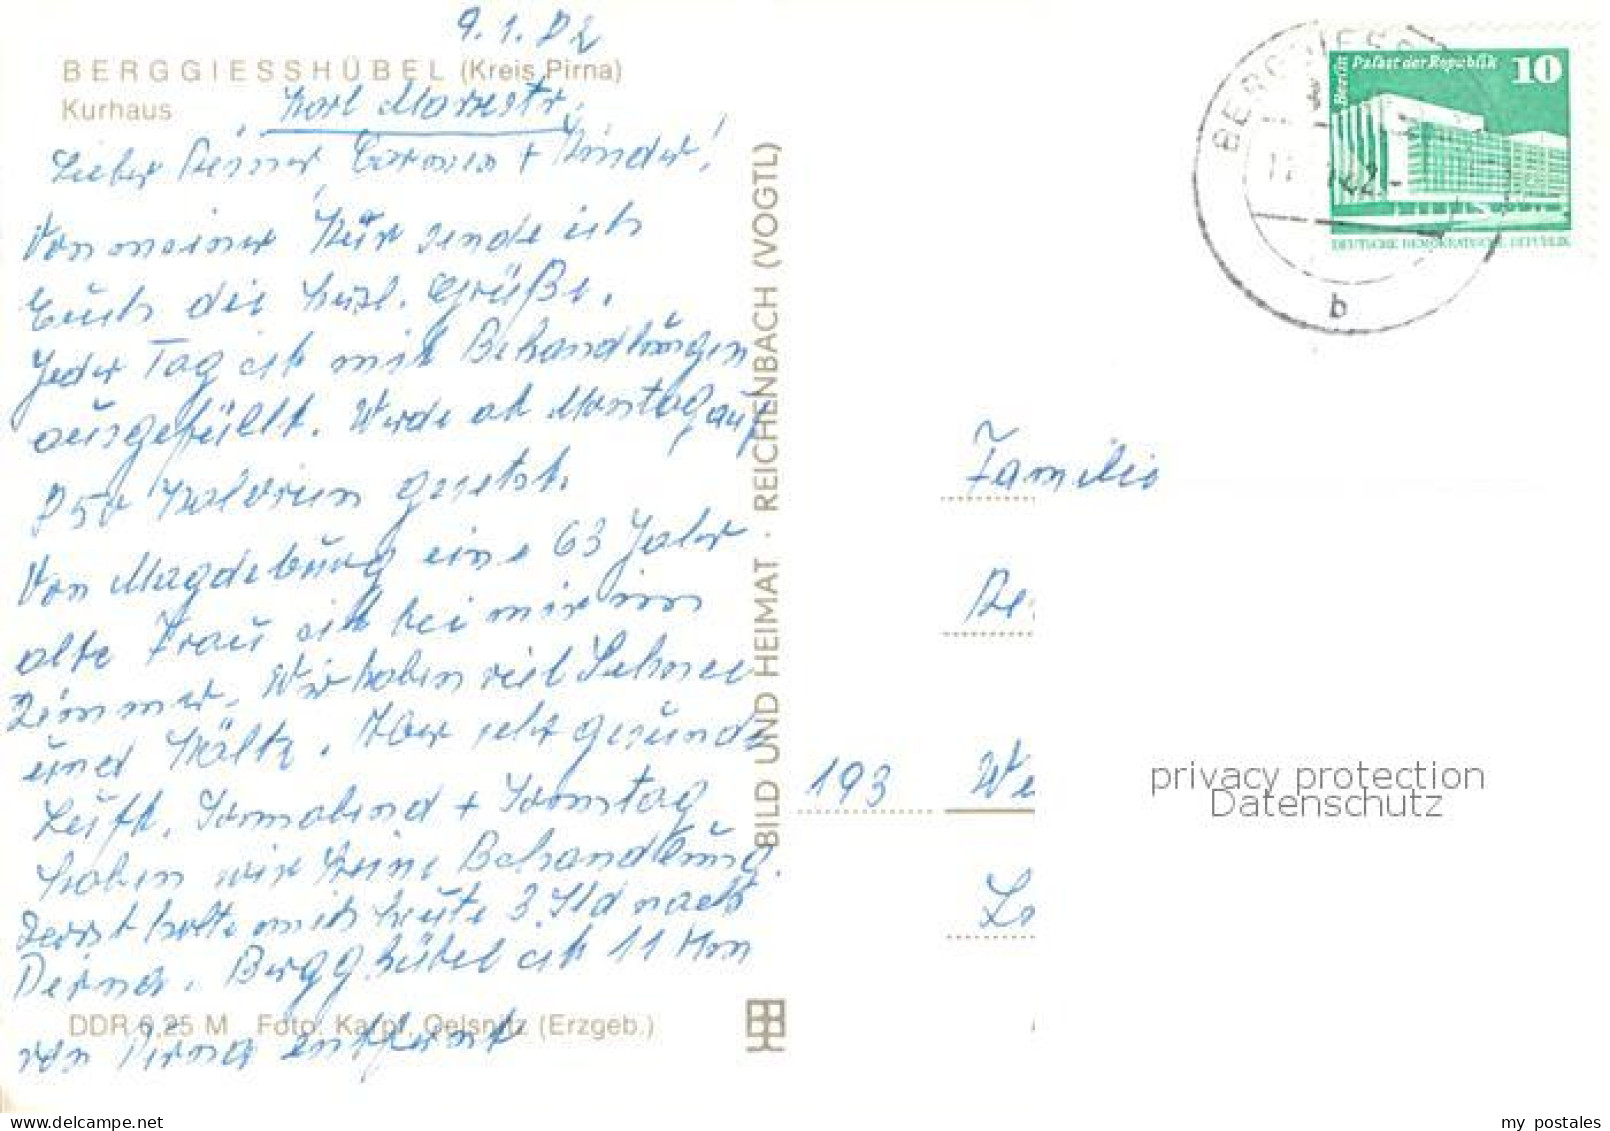 9.1.82
BERGGIESSHÜBEL (Kreis Pirna)
Kurhaus
Karl Marxstr.
Lieber Reiner, Carmen + Kinder!
Von meiner Kur sende ich
Euch die herzl. Grüße.
Jeder Tag ist mit Behandlungen
ausgefüllt. Werde ab Montag auf
850 Kalorien gesetzt.
Von Magdeburg eine 63 Jahr
alte Frau ist bei mir im
Zimmer. Wir haben viel Schnee
und Kälte. Aber sehr gesunde
Luft. Sonnabend + Sonntag
haben wir keine Behandlung.
heute 3 Std nach
Pirna. Bergghübel ist 11 Km
von Pirna entfernt
DDR 0,25 M Foto: Karpf, Oelsnitz (Erzgeb.)
BILD UND HEIMAT · REICHENBACH (VOGTL)
BERGGIESS
b
Berlin Palast der Republik 10
DEUTSCHE DEMOKRATISCHE REPUBLIK
Familie
193 We
privacy protection
Datenschutz
my postales